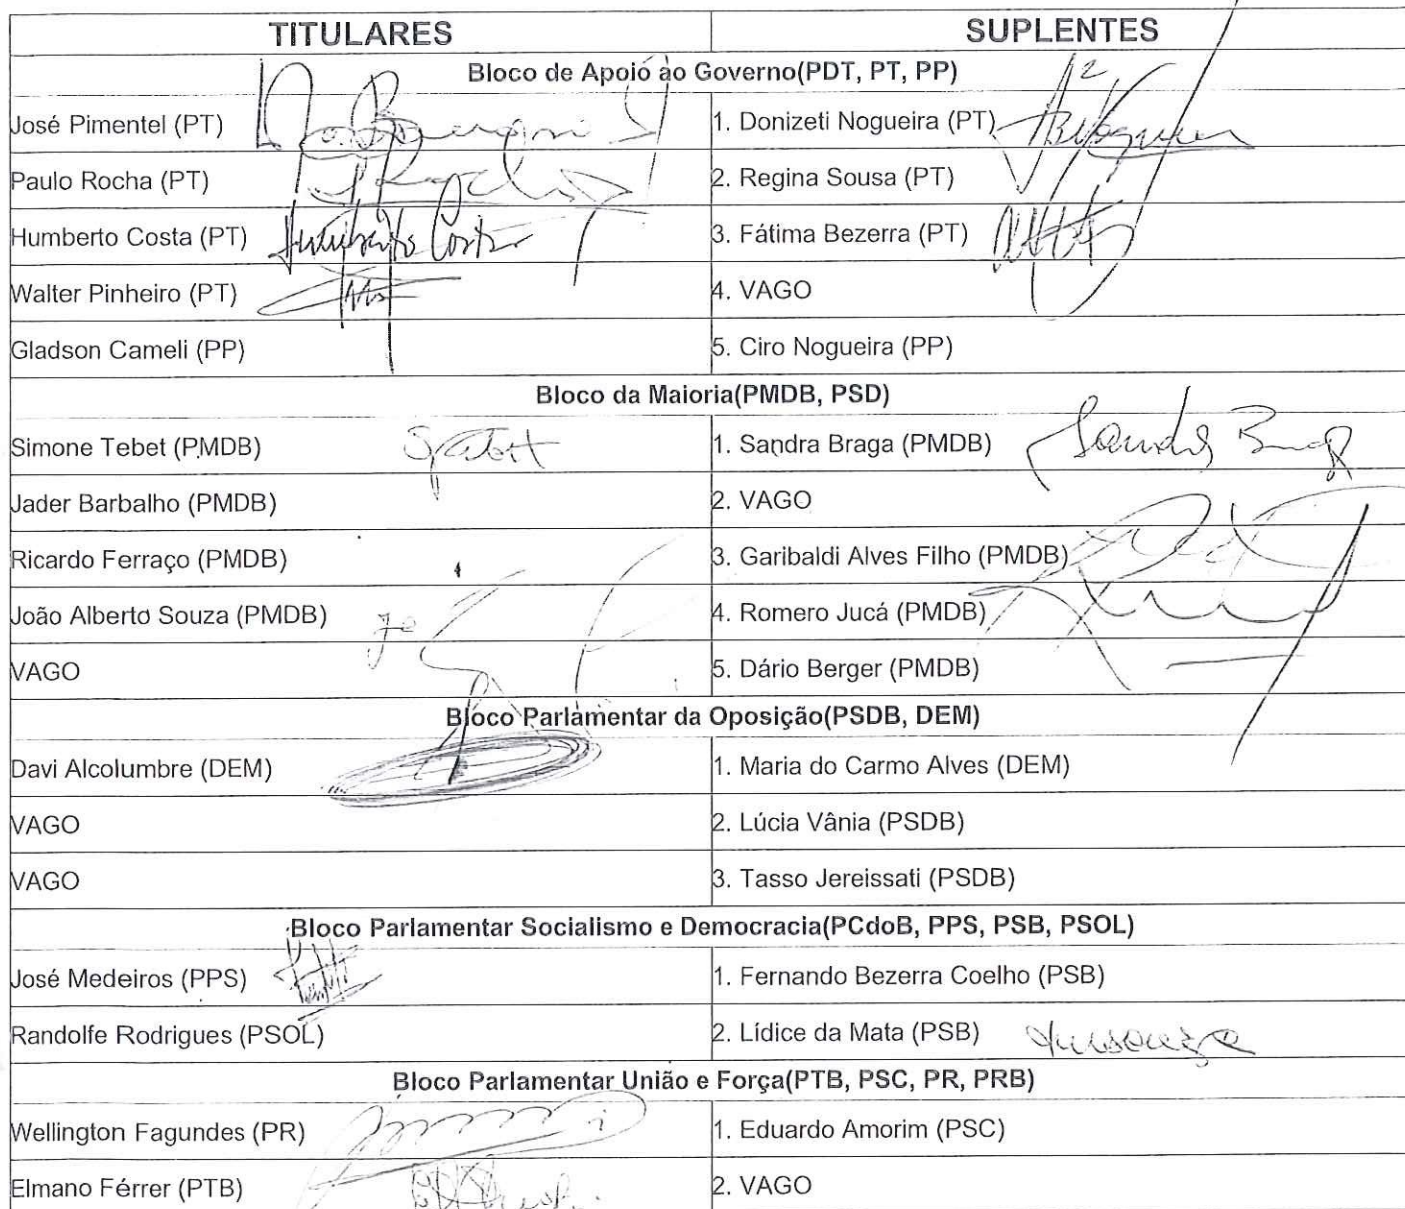 TITULARES SUPLENTES
Bloco de Apoio ao Governo(PDT, PT, PP)
José Pimentel (PT) 1. Donizeti Nogueira (PT)
Paulo Rocha (PT) 2. Regina Sousa (PT)
Humberto Costa (PT) Humberto Costa 3. Fátima Bezerra (PT)
Walter Pinheiro (PT) 4. VAGO
Gladson Cameli (PP) 5. Ciro Nogueira (PP)
Bloco da Maioria(PMDB, PSD)
Simone Tebet (PMDB) 1. Sandra Braga (PMDB) Sandra Braga
Jader Barbalho (PMDB) 2. VAGO
Ricardo Ferraço (PMDB) 3. Garibaldi Alves Filho (PMDB)
João Alberto Souza (PMDB) 4. Romero Jucá (PMDB)
VAGO 5. Dário Berger (PMDB)
Bloco Parlamentar da Oposição(PSDB, DEM)
Davi Alcolumbre (DEM) 1. Maria do Carmo Alves (DEM)
VAGO 2. Lúcia Vânia (PSDB)
VAGO 3. Tasso Jereissati (PSDB)
Bloco Parlamentar Socialismo e Democracia(PCdoB, PPS, PSB, PSOL)
José Medeiros (PPS) 1. Fernando Bezerra Coelho (PSB)
Randolfe Rodrigues (PSOL) 2. Lídice da Mata (PSB)
Bloco Parlamentar União e Força(PTB, PSC, PR, PRB)
Wellington Fagundes (PR) 1. Eduardo Amorim (PSC)
Elmano Férrer (PTB) 2. VAGO